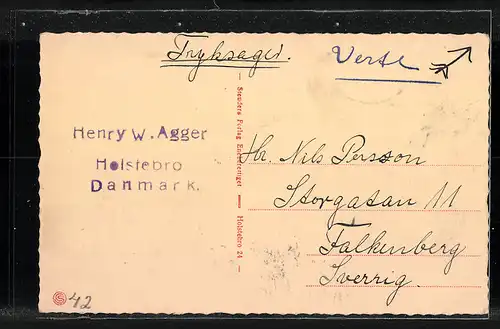 Tryksager.
Verte
Henry W. Agger
Holstebro
Danmark.
Steuders Forlag Eneberettiget — Holstebro 24
Hr. Nils Persson
Storgatan 11
Falkenberg
Sverrig.
S 42